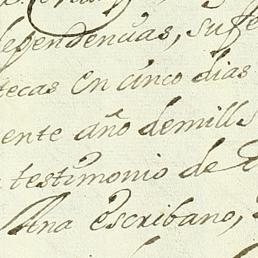 dependencias, sufe
tecas en cinco dias
ente año demill s
testimonio de
Ana escribano,